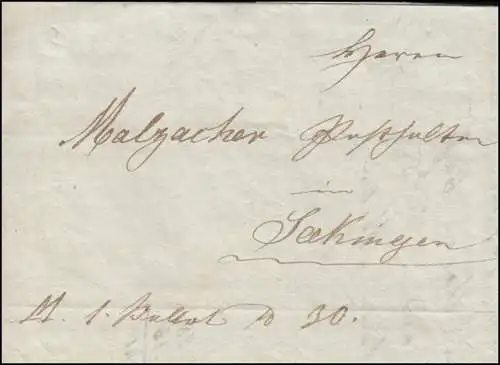 Herrn
Malzacher Posthalter
in
Säckingen
M. 1. Ballot 30.